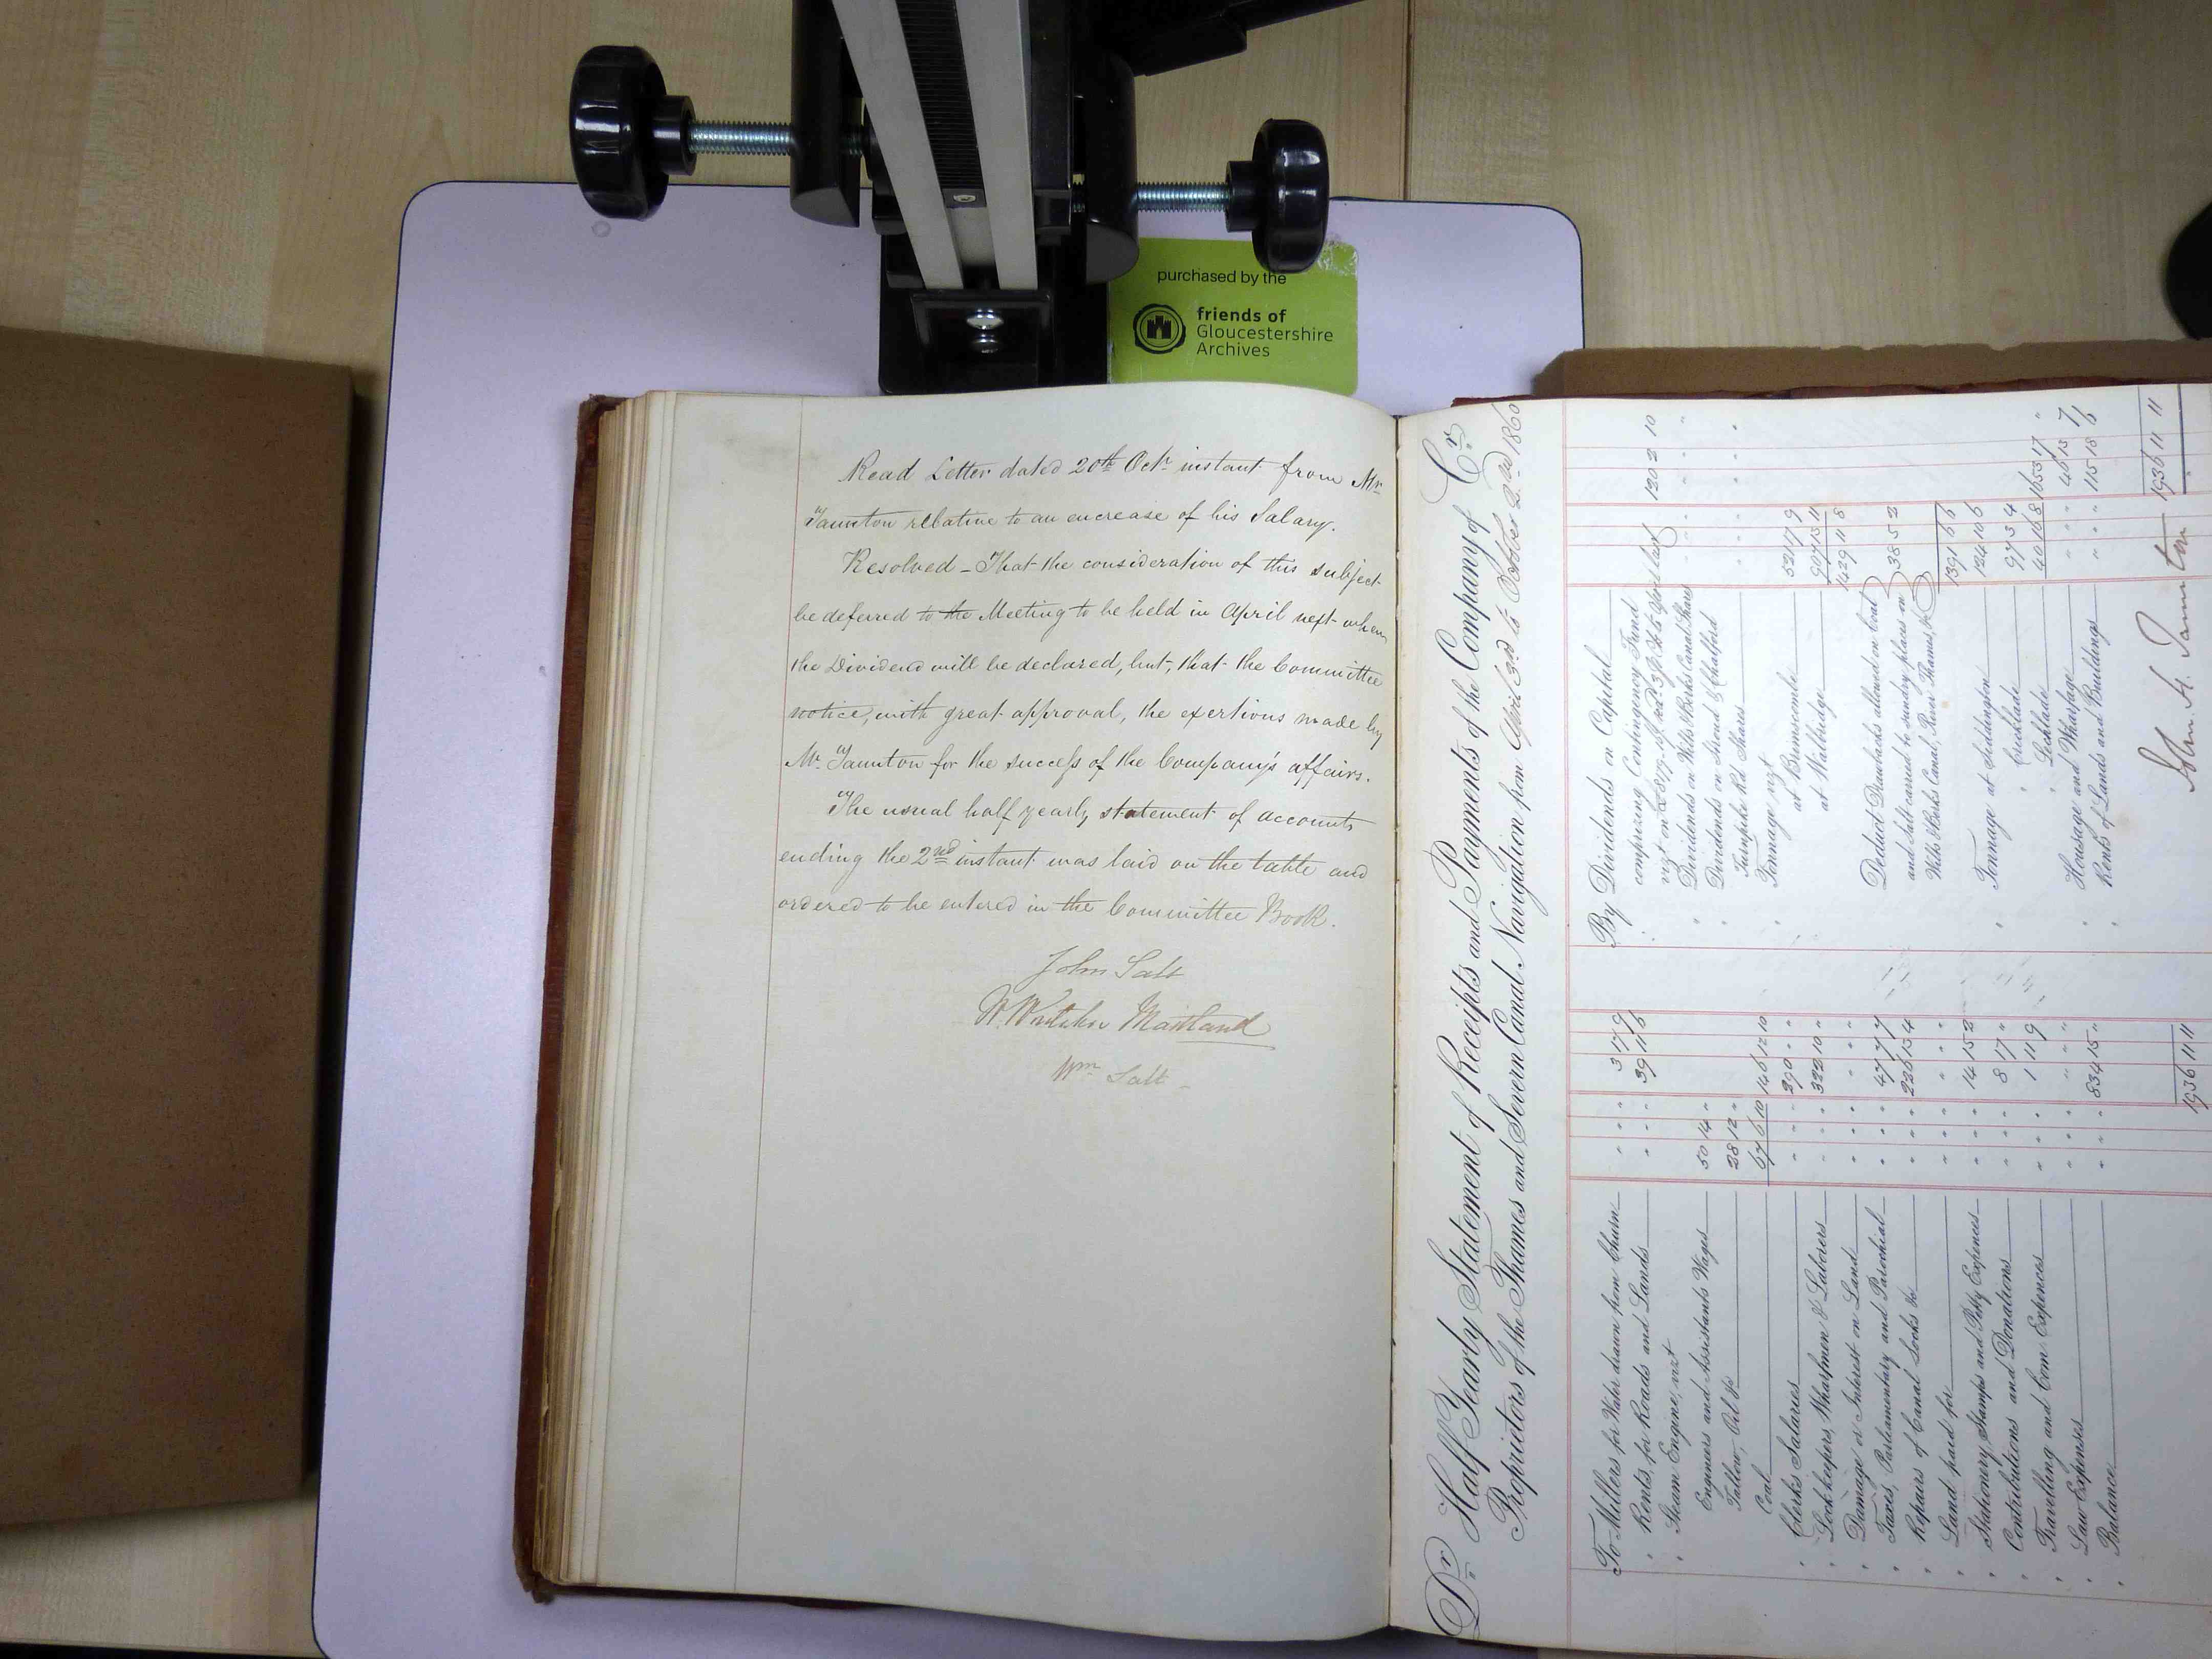 purchased by the
friends of
Gloucestershire
Archives
Read Letter dated 20th Octr instant from Mr
Taunton relative to an encrease of his Salary.
Resolved - That the consideration of this subject
be deferred to the Meeting to be held in April next when
the Dividend will be declared, but, that the Committee
notice, with great approval, the exertions made by
Mr. Taunton for the success of the Company's affairs.
The usual half yearly statement of accounts
ending the 2nd instant was laid on the table and
ordered to be entered in the Committee Book.
John Salt
Maitland
Wm Salt
Dr Half Yearly Statement of Receipts and Payments of the Company of Cr
Proprietors of the Thames and Severn Canal Navigation from April 3rd to October 2nd 1860
To Millers for Water drawn from Churn 3 17 9
" Rents, for Roads and Lands 39 11 6
" Steam Engine, vizt
Engineers and Assistants Wages 50 14 "
Tallow, Oil &c 28 12 "
Coal 67 6 10 146 12 10
" Clerks Salaries 290 " "
" Lockkeepers, Wharfmen & Laborers 332 10 "
" Damage or Interest on Land " " "
" Taxes, Parliamentary and Parochial 47 7 7
" Repairs of Canal Locks &c 226 13 4
" Land paid for " " "
" Stationery, Stamps and Petty Expences 14 15 2
" Contributions and Donations 8 17 "
" Travelling and Com Expences 1 11 9
" Law Expenses " " "
" Balance 834 15 "
1936 11 11
By Dividends on Capital
comprizing Contingency Fund
120 2 10
" Dividends on Wilts & Berks Canal Shares
" Dividends on Stroud & Chalford
Turnpike Rd Shares
" Tonnage vizt
at Brimscombe 521 17 9
at Wallbridge 907 13 11
1429 11 8
Deduct Drawbacks allowed on Coal
and Salt carried to sundry places on
Wilts & Berks Canal, River Thames, &c 38 5 2
1391 6 6
" Tonnage at Siddington 124 10 6
" Cricklade 97 3 4
" Lechlade 40 16 8 1653 17 "
" Housage and Wharfage 46 13 7
" Rents of Lands and Buildings 115 18 6
1936 11 11
John H. Taunton